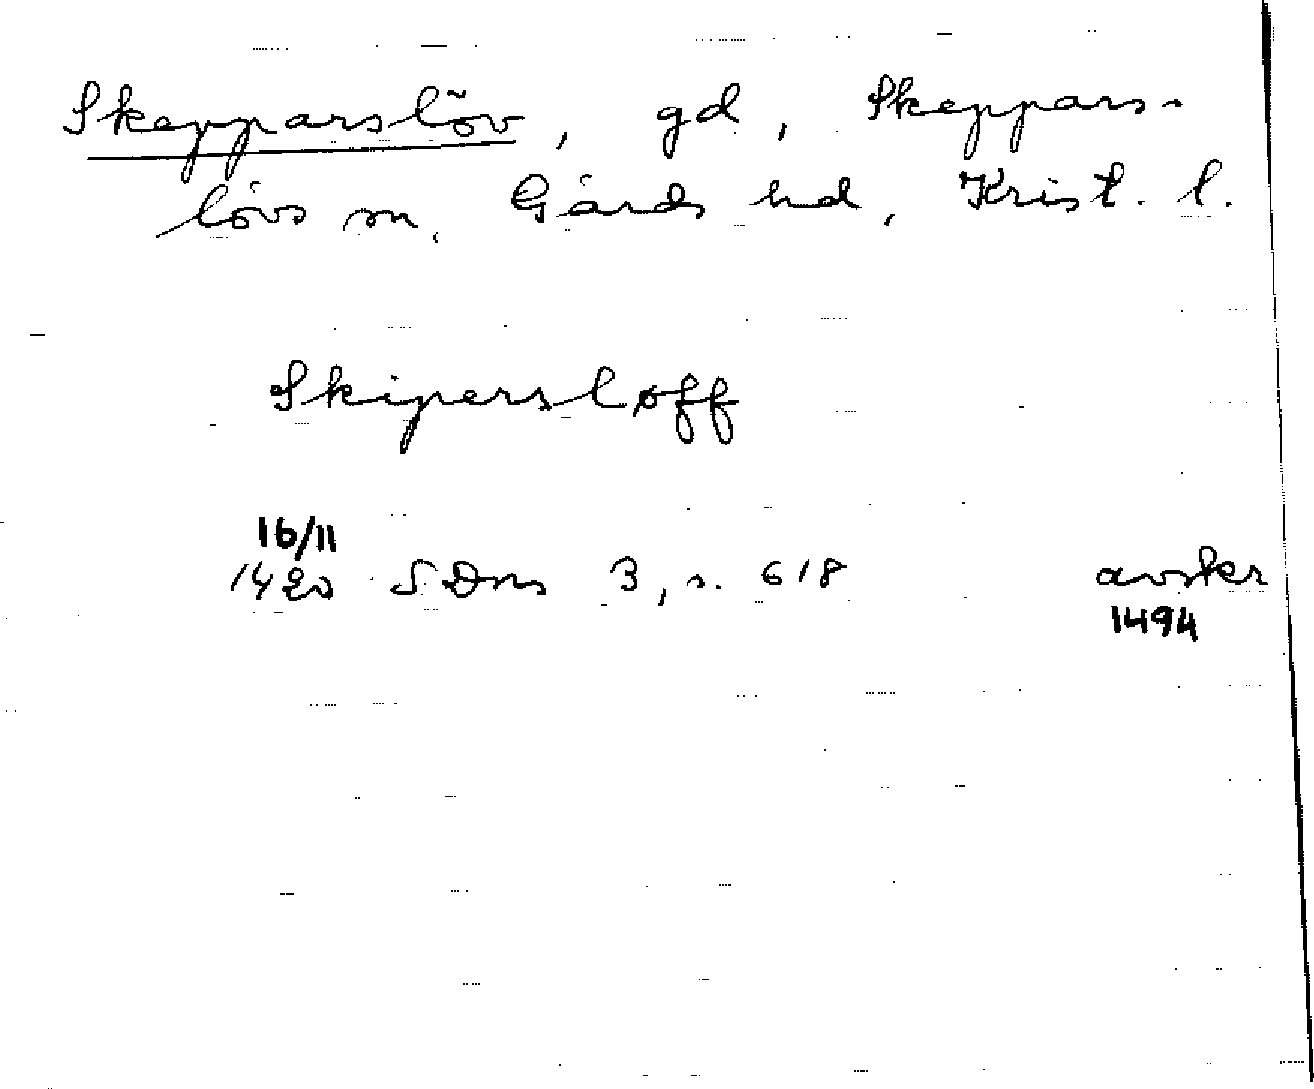 Skepparslöv, gd, Skeppars-
lövs sn, Gärds hd, Krist. l.
Skipersløff
16/11
1420 SDns 3, s. 618 avskr
1494